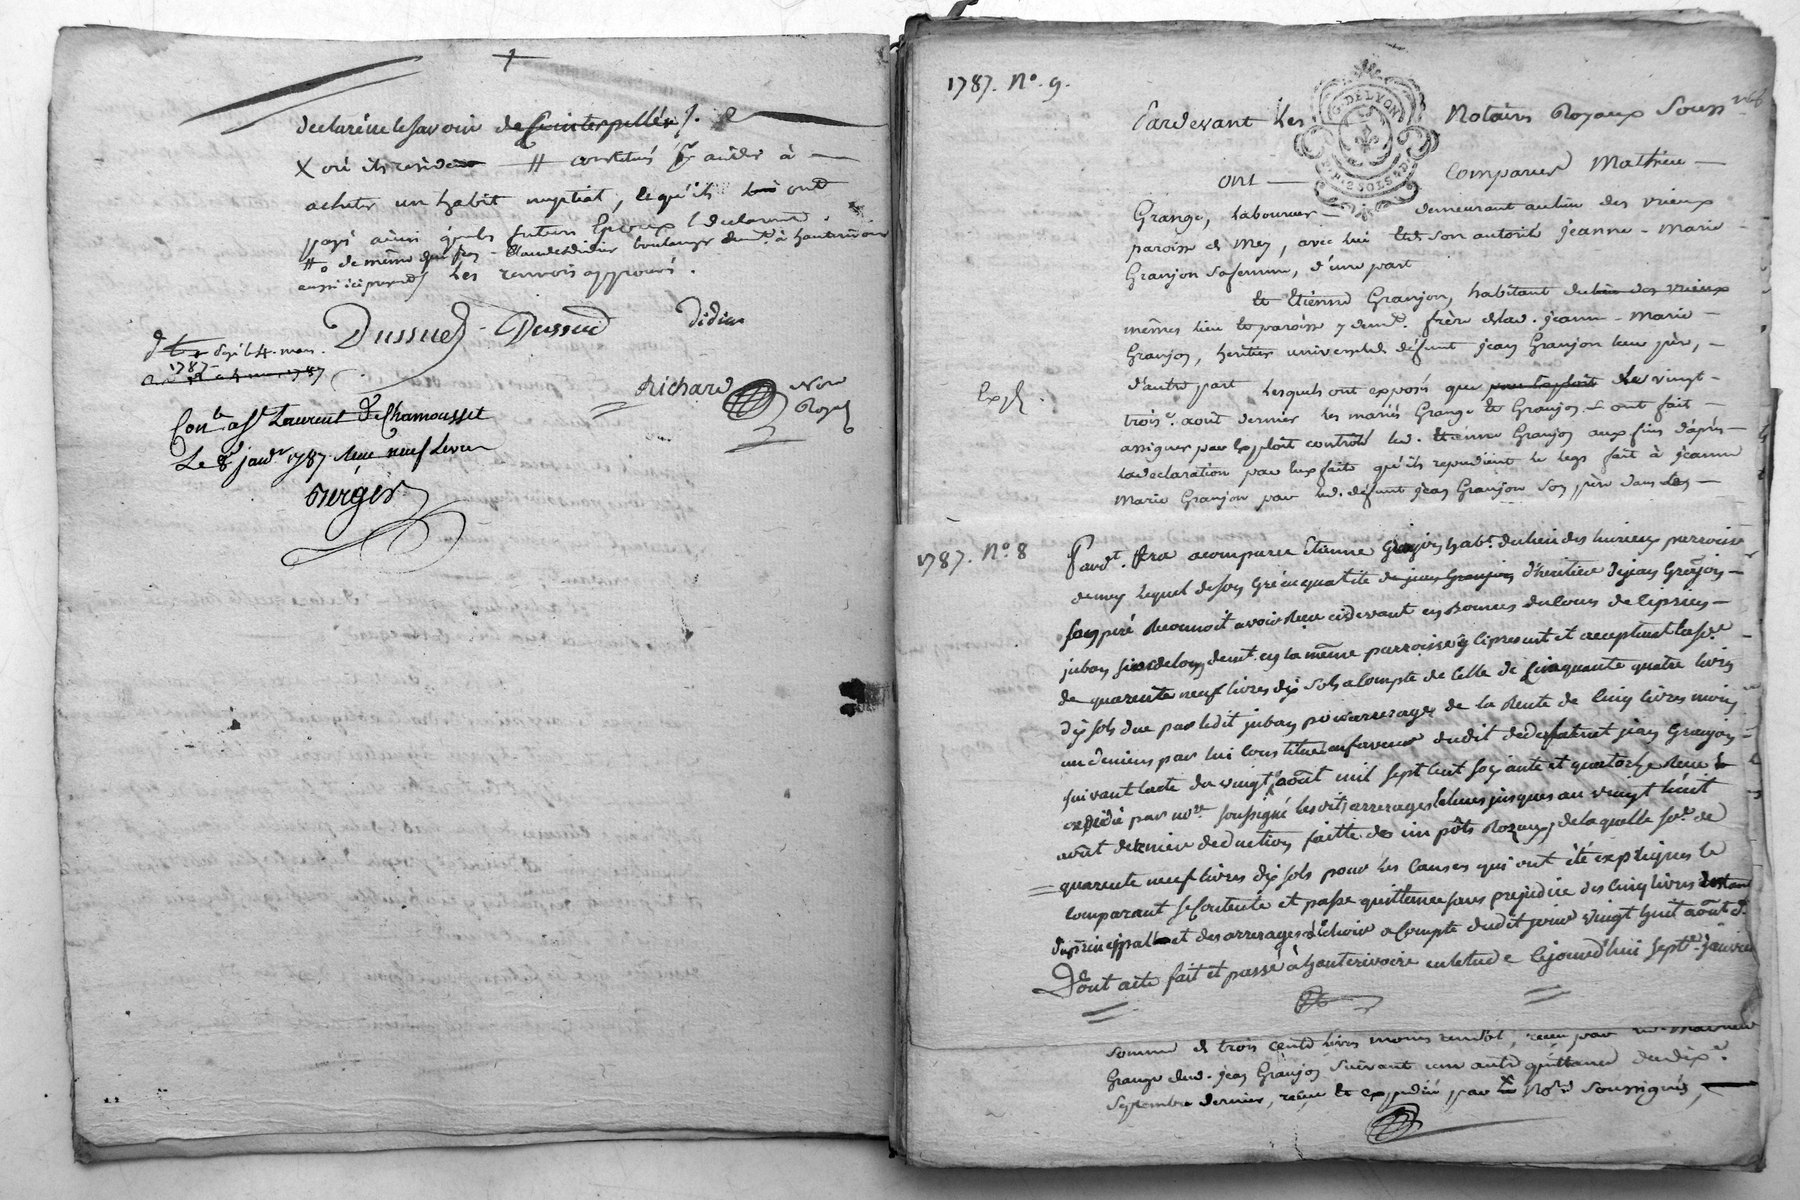 declaré ne le savoir de ce interpellés /.
X où ils resident # constitués pr aider à
acheter un habit nuptial, lequ'ils ont
payé ainsi que les futurs Epoux l declarent.
# de même que sr Claude Didier boulanger demt. à hauterivoire
aussi ici present / Les renvois approuvés.
Dussud Dussud Didier
Richard Nore Royal
1787
Conlé. à St Laurent De Chamousset
Le 8 janvr 1787. Reçu neuf Livres
Berger
1787. No. 9.
Pardevant Les Notaires Royaux Souss nés
G. DE LYON
ont Comparu Mathieu
Grange, Laboureur demeurant au lieu des vrieux
paroisse de Mey, avec lui Et de son autorité jeanne-Marie
Granjon sa femme, d'une part
Et Etienne Granjon, habitant du lieu des vrieux
mêmes lieu & paroisse y demt. frère de lad. jeanne-Marie
Granjon, heritier universel de défunt jean Granjon leur père,
d'autre part Lesquels ont exposés que Le vingt
trois. aout dernier Les mariés Grange Et Granjon ont fait
assigner par Exploit controlé led. Etienne Granjon aux fins d'après
la declaration par Eux faite qu'ils repudient le legs fait à jeanne
Marie Granjon par led. défunt jean Granjon son père dans Les
1787. No. 8
Pardt. Etra a comparu Etienne Granjon habt. du lieu des hurieux parroisse
de mey lequel de son gré en qualité de jean Granjon d'heritier de jean Granjon
son peré Reconnoit avoir Reçu cidevant en Bonnes du Cours de Ciprien
juban demt. en la même parroisse y ci present et acceptant la so.e
de quarente neuf livres dix sols a Compte de Celle de Cinquante quatre livres
dix sols due par ledit juban pour arrerages de la Rente de Cinq livres moins
un deniers par lui Constituée en faveur dudit dedefunt jean Granjon
suivant lacte du vingt août mil sept Cent soixante et quatorze Reçu &
expedié par no.re soussigné lesdits arrerages Echeus jusques au vingt huit
août dernier deduction faitte des impôts Royaux, de laquelle so.e de
quarente neuf livres dix sols pour les Causes qui ont été expliquées le
Comparant se Contente et passe quittance sans prejudice des Cinq livres restant
du principal et des arrerages à Echoir a Compte dudit jour vingt huit août d.
Dont acte fait et passé à hauterivoire en letude le jourdhui sept.e janvier
somme de trois cents livres moins un sol, reçu par led. Mathieu
Grange dud. jean Granjon Suivant une autre quittance du dix.e
Septembre dernier, reçue Et expediée par Le No.re Soussignés,